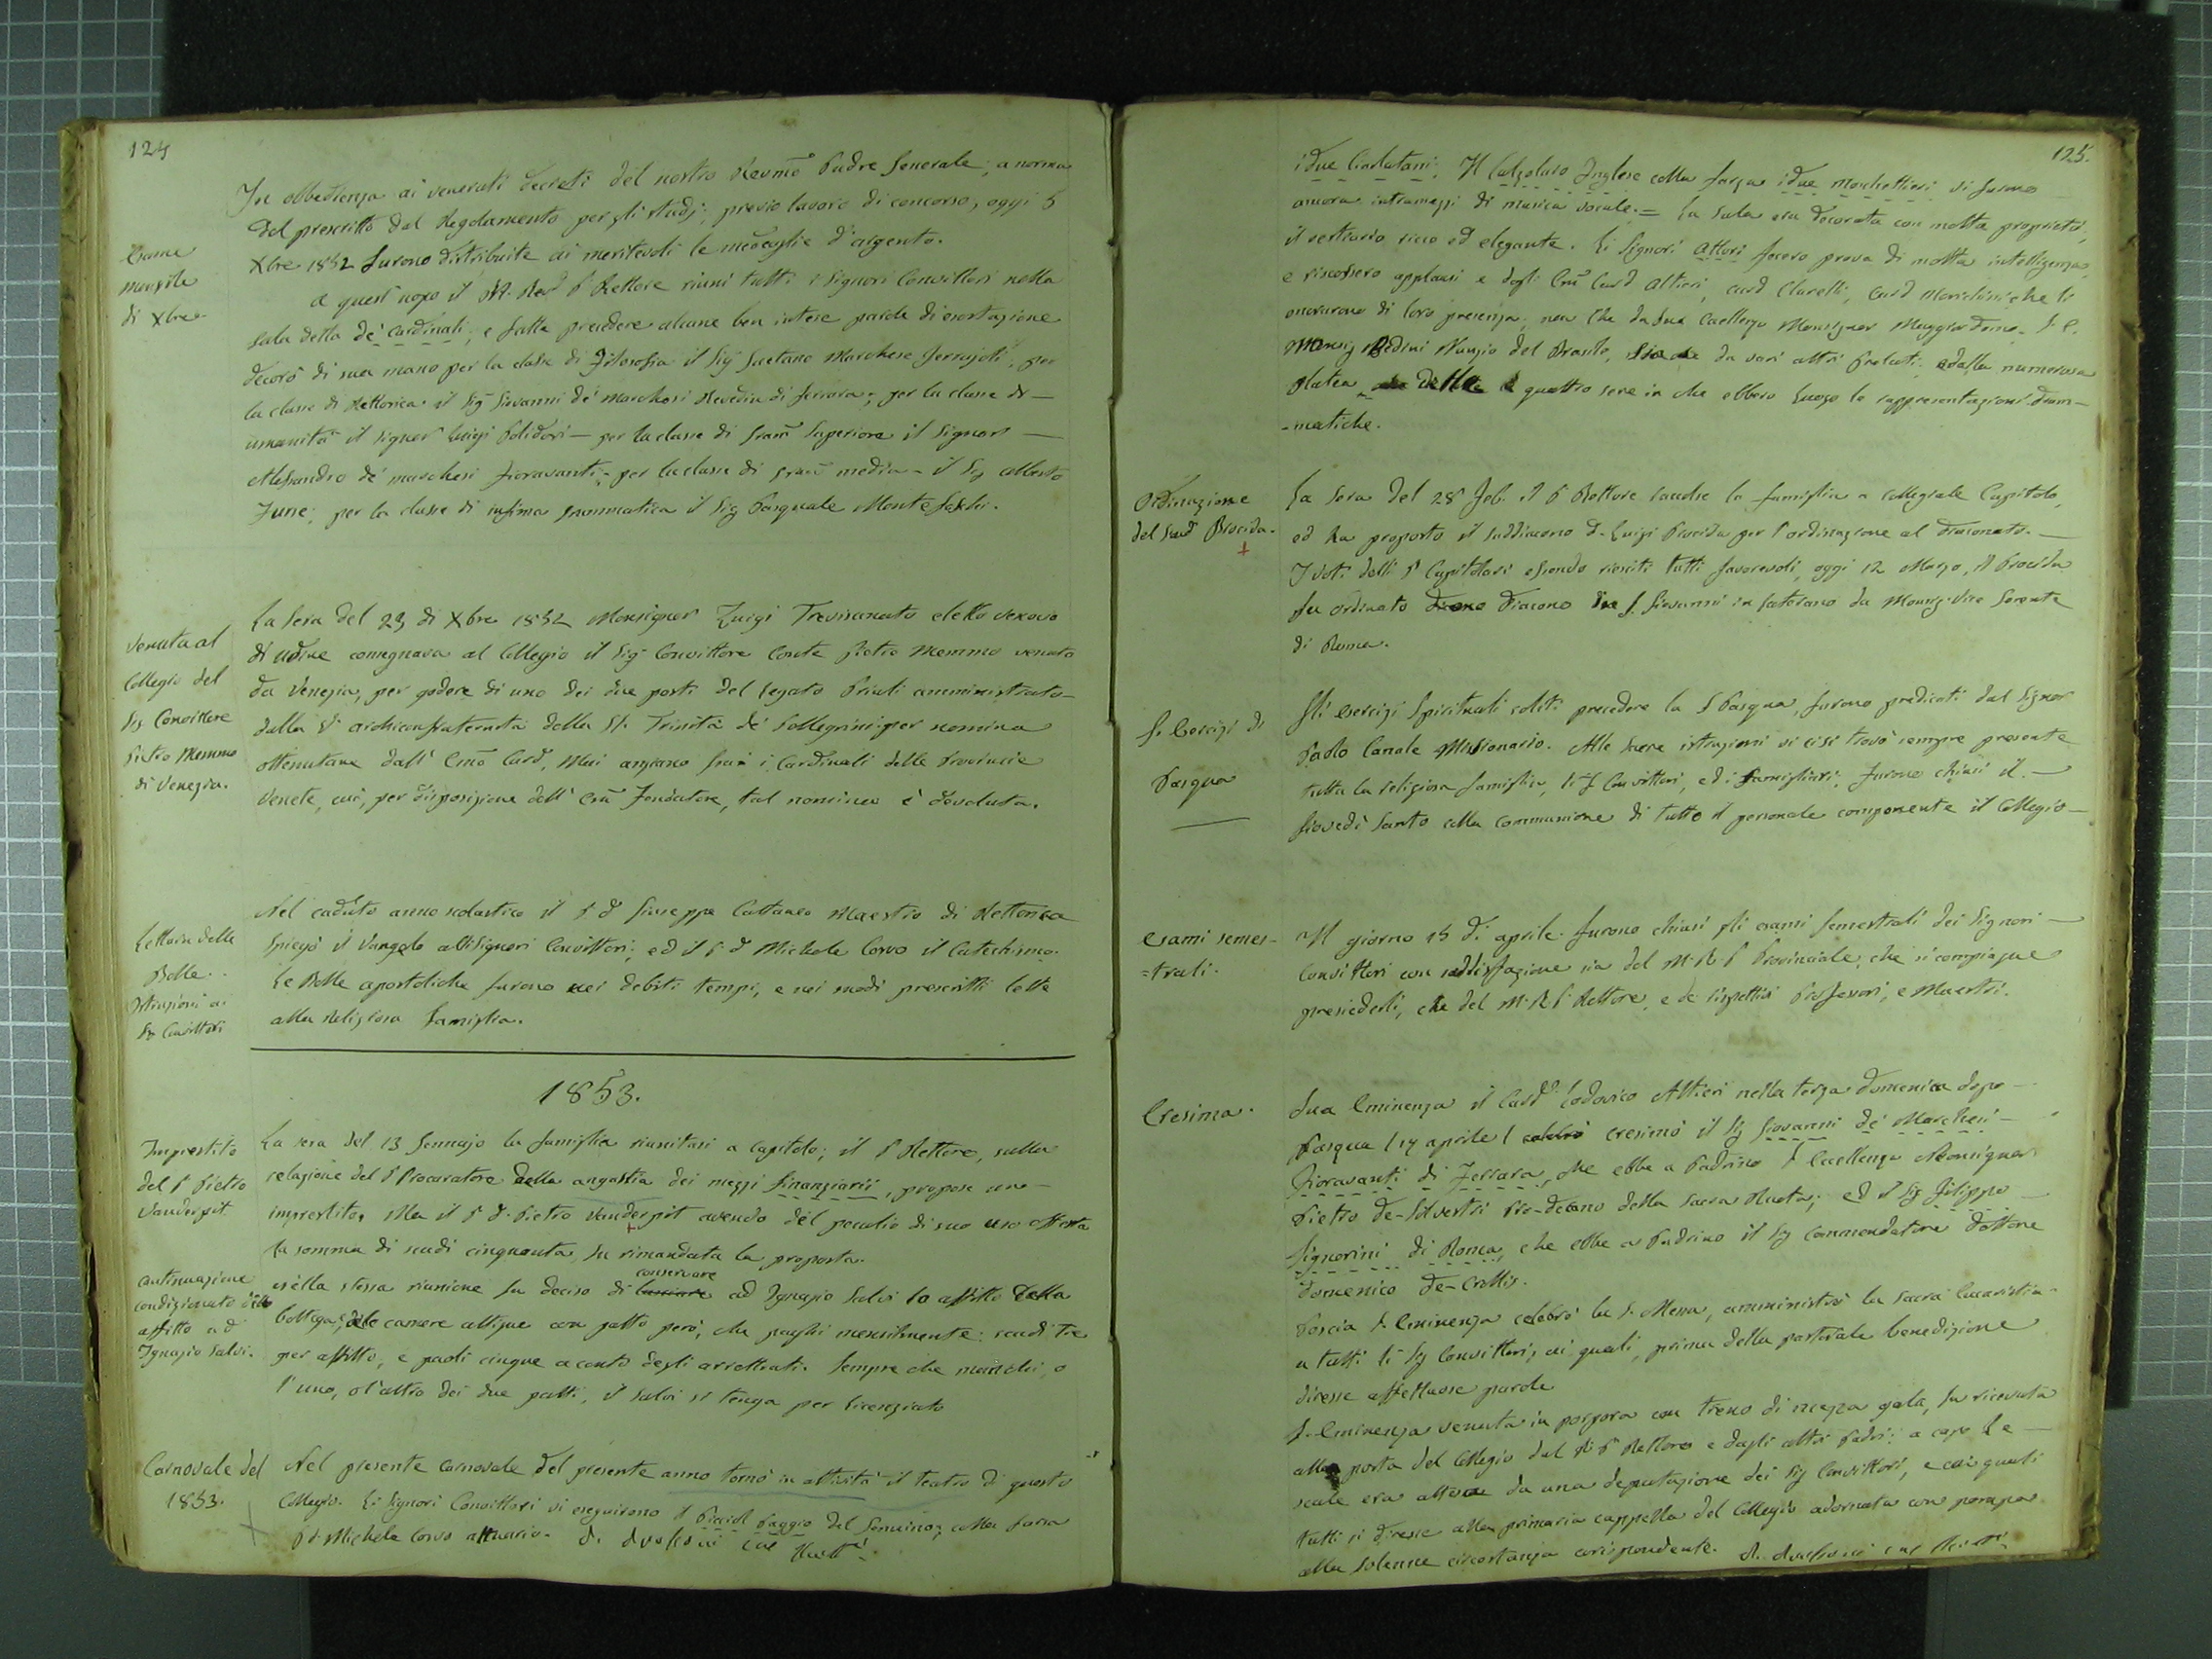 124
In obbedienza ai venerati decreti del nostro Revmo Padre Generale; a norma
del prescritto dal Regolamento per gli studj; previo lavoro di concorso, oggi 5
Xbre 1852 furono distribuite ai meritevoli le medaglie d'argento.
Esame
mensile
di Xbre.
A quest'uopo il M. Rev P Rettore riunì tutti i Signori Convittori nella
sala detta de' Cardinali, e fatte precedere alcune ben intese parole di esortazione
decorò di sua mano per la classe di Filosofia il Sig Gaetano Marchese Ferrajoli, per
la classe di Rettorica il Sig Giovanni de' Marchesi Revedin di Ferrara; per la classe di
umanità il signor Luigi Polidori — per la classe di Gram Superiore il Signor
Alessandro de' marchesi Fioravanti; per la classe di gram media - il Sig Alberto
June; per la classe di infima grammatica il Sig Pasquale Monteforchi.
Venuta al
Collegio del
Sig Convittore
Pietro Memmo
di Venezia.
La sera del 23 di Xbre 1852 Monsignor Luigi Trevisanato eletto vescovo
di Udine consegnava al Collegio il Sig Convittore Conte Pietro Memmo venuto
da Venezia, per godere di uno dei due posti del legato Priuli amministrato
dalla V. archiconfraternita della SS. Trinità de' Pellegrini per nomina
ottenutane dall' Emo Card. Mai anziano fra i Cardinali delle Provincie
Venete, cui, per disposizione dell' Em Fondatore, tal nomina è devoluta.
Lettura delle
Bolle.
Istruzioni ai
Sig Convittori
Nel caduto anno scolastico il P D Giuseppe Cattaneo Maestro di Rettorica
spiegò il Vangelo alli Signori Convittori; ed il P D Michele Corvo il Catechismo.
Le Bolle apostoliche furono nei debiti tempi, e nei modi prescritti lette
alla religiosa famiglia.
1853.
Imprestito
del P Pietro
Vanderpit
La sera del 13 Gennajo la famiglia riunitasi a capitolo; il P Rettore, sulla
relazione del P Procuratore della angustia dei mezzi finanziarii, propose uno
imprestito. Ma il P D. Pietro Vanderpit avendo del peculio di suo uso offerta
la somma di scudi cinquanta, fu rimandata la proposta.
Continuazione
condizionata dello
affitto ad
Ignazio Salvi.
Nella stessa riunione fu deciso di lasciare conservare ad Ignazio Salvi lo affitto della
bottega, e delle camere attigue con patto però, che paghi mensilmente: scudi tre
per affitto, e paoli cinque a conto degli arretrati. Sempre che manchi, o
l'uno, o l'altro dei due patti, il Salvi si tenga per licenziato
Carnovale del
1853.
Nel presente Carnovale del presente anno tornò in attività il teatro di questo
Collegio. Li Signori Convittori vi eseguirono il Piccol Paggio del Genuino; colla farsa
P D Michele Corvo attuario.
125.
i due Ciarlatani; Il Calzolaro Inglese colla farsa i due Moschettieri vi furono
ancora intramezzi di musica vocale. = La sala era decorata con molta proprietà;
il vestiario ricco ed elegante. Li Signori Attori fecero prova di molta intelligenza,
e riscossero applausi e dagli Em Card Altieri, Card Clarelli, Card Marchini che li
onorarono di loro presenza, non che da Sua Eccellenza Monsignor Maggiordomo. S. E.
Monsig Bedini Nunzio del Brasile, da vari altri Prelati, e dalla numerosa
platea, delle quattro sere in che ebbero luogo le rappresentazioni dram-
-matiche.
Ordinazione
del Sud Procida.
La sera del 28 Feb. il P Rettore raccolse la famiglia a collegiale Capitolo,
ed ha proposto il suddiacono D. Luigi Procida per l'ordinazione al diaconato.
I voti delli P Capitolari essendo riusciti tutti favorevoli, oggi 12 Marzo, il Procida
fu ordinato diacono in S. Giovanni in Laterano da Monsig. Vice Gerente
di Roma.
S. Esercizi di
Pasqua
Gli esercizi spirituali soliti precedere la S Pasqua, furono predicati dal Signor
Paolo Canale Missionario. Alle sacre istruzioni vi ci si trovò sempre presente
tutta la religiosa famiglia, li S Convittori, ed i famigliari; furono chiusi il
Giovedì Santo colla communione di tutto il personale componente il Collegio
Esami semes-
=trali.
Il giorno 15 di aprile furono chiusi gli esami semestrali dei Signori
Convittori con soddisfazione sia del M. R. P Provinciale, che si compiacque
presiederli, che del M. R P Rettore, e de' rispettivi Professori, e Maestri.
Cresima.
Sua Eminenza il Card Lodovico Altieri nella terza domenica dopo
Pasqua (17 aprile) celebrò cresimò il Sig Giovanni de' Marchesi
Fioravanti di Ferrara, che ebbe a Padrino S Eccellenza Monsignor
Pietro de-Silvestri Pro-decano della Sacra Ruota; ed il Sig Filippo
Signorini di Roma, che ebbe a Padrino il Sig Commendatore Dottore
Domenico de-Crollis.
Poscia S. Eminenza celebrò la S. Messa, amministrò la Sacra Eucaristia
a tutti li Sig Convittori; ai quali, prima della pastorale benedizione
diresse affettuose parole
S. Eminenza venuta in porpora con treno di mezza gala, fu ricevuta
alla porta del Collegio dal P Rettore e dagli altri Padri: a capo le
scale era attesa da una deputazione dei Sig Convittori, e coi quali
tutti si diresse alla primaria cappella del Collegio adornata con pompa
alla solenne circostanza corispondente.